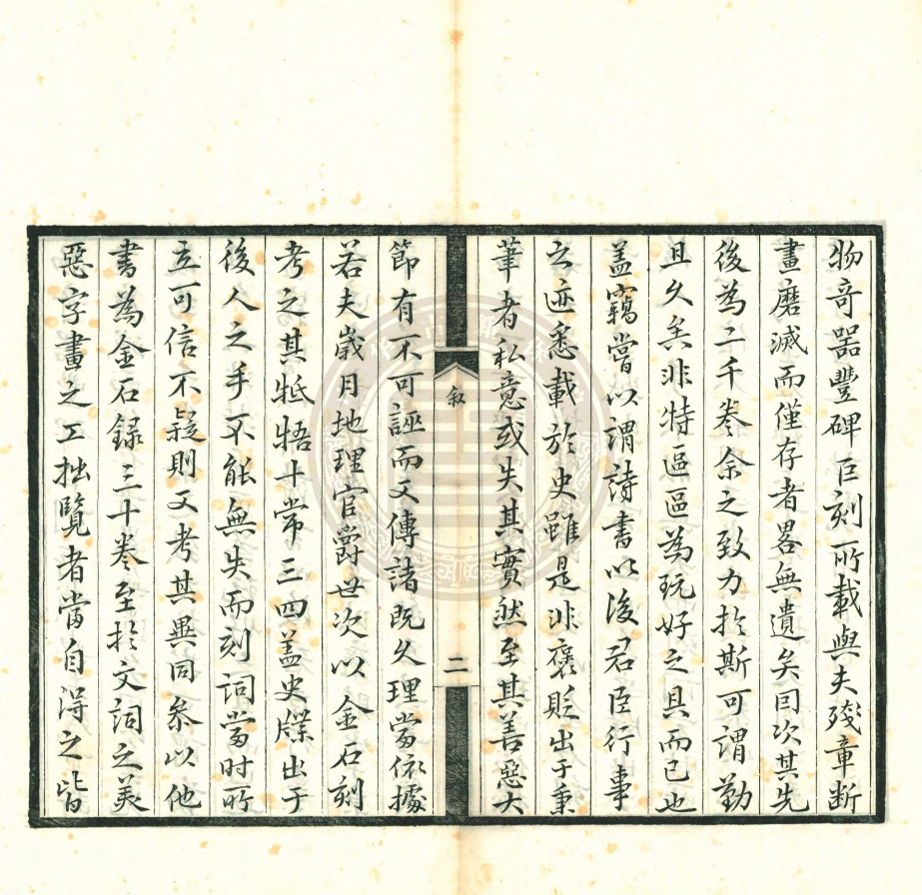 物奇器豐碑巨刻所載與夫殘章断
畫磨滅而僅存者畧無遺矣因次其先
後為二千卷余之致力於斯可謂勤
且久矣非特區區為玩好之具而已也
盖竊嘗以謂詩書以後君臣行事
之迹悉載於史雖是非襃貶出于秉
筆者私意或失其實然至其善惡大
叙
二
節有不可誣而又傳諸既久理當依據
若夫歲月地理官爵世次以金石刻
考之其牴牾十常三四盖史牒出于
後人之手不能無失而刻詞當时所
立可信不疑則又考其異同叅以他
書為金石錄三十卷至於文詞之美
惡字畫之工拙覽者當自得之皆